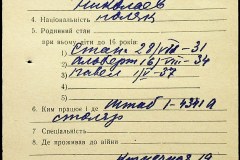 Николаев
4. Національність поляк
5. Родинний стан
при ньому діти до 16 років:
1. Стан. 28/VIII-31
2. Альберт 16/VIII-34
3. Павел 1/V-37
4.
5.
6. Ким працює і де Штаб 1-4341а
столяр
7. Спеціальність
8. Де проживав до війни
19